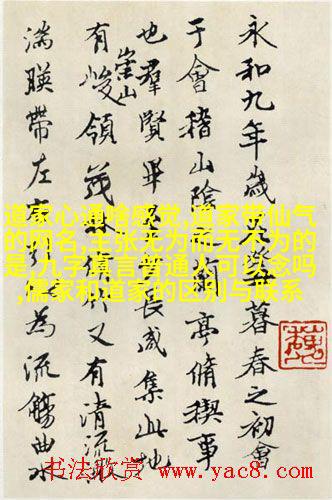 永和九年歲暮春之初會
于會稽山陰蘭亭脩稧事
也羣賢畢長咸集此地
有崇山峻領茂林又有清流激
湍暎帶左為流觴曲水
道家心通啥感觉,道家带仙气
的网名,主张无为而无不为的
是,九字真言普通人可以念吗
,儒家和道家的区别与联系
书法欣赏 www.yac8.com